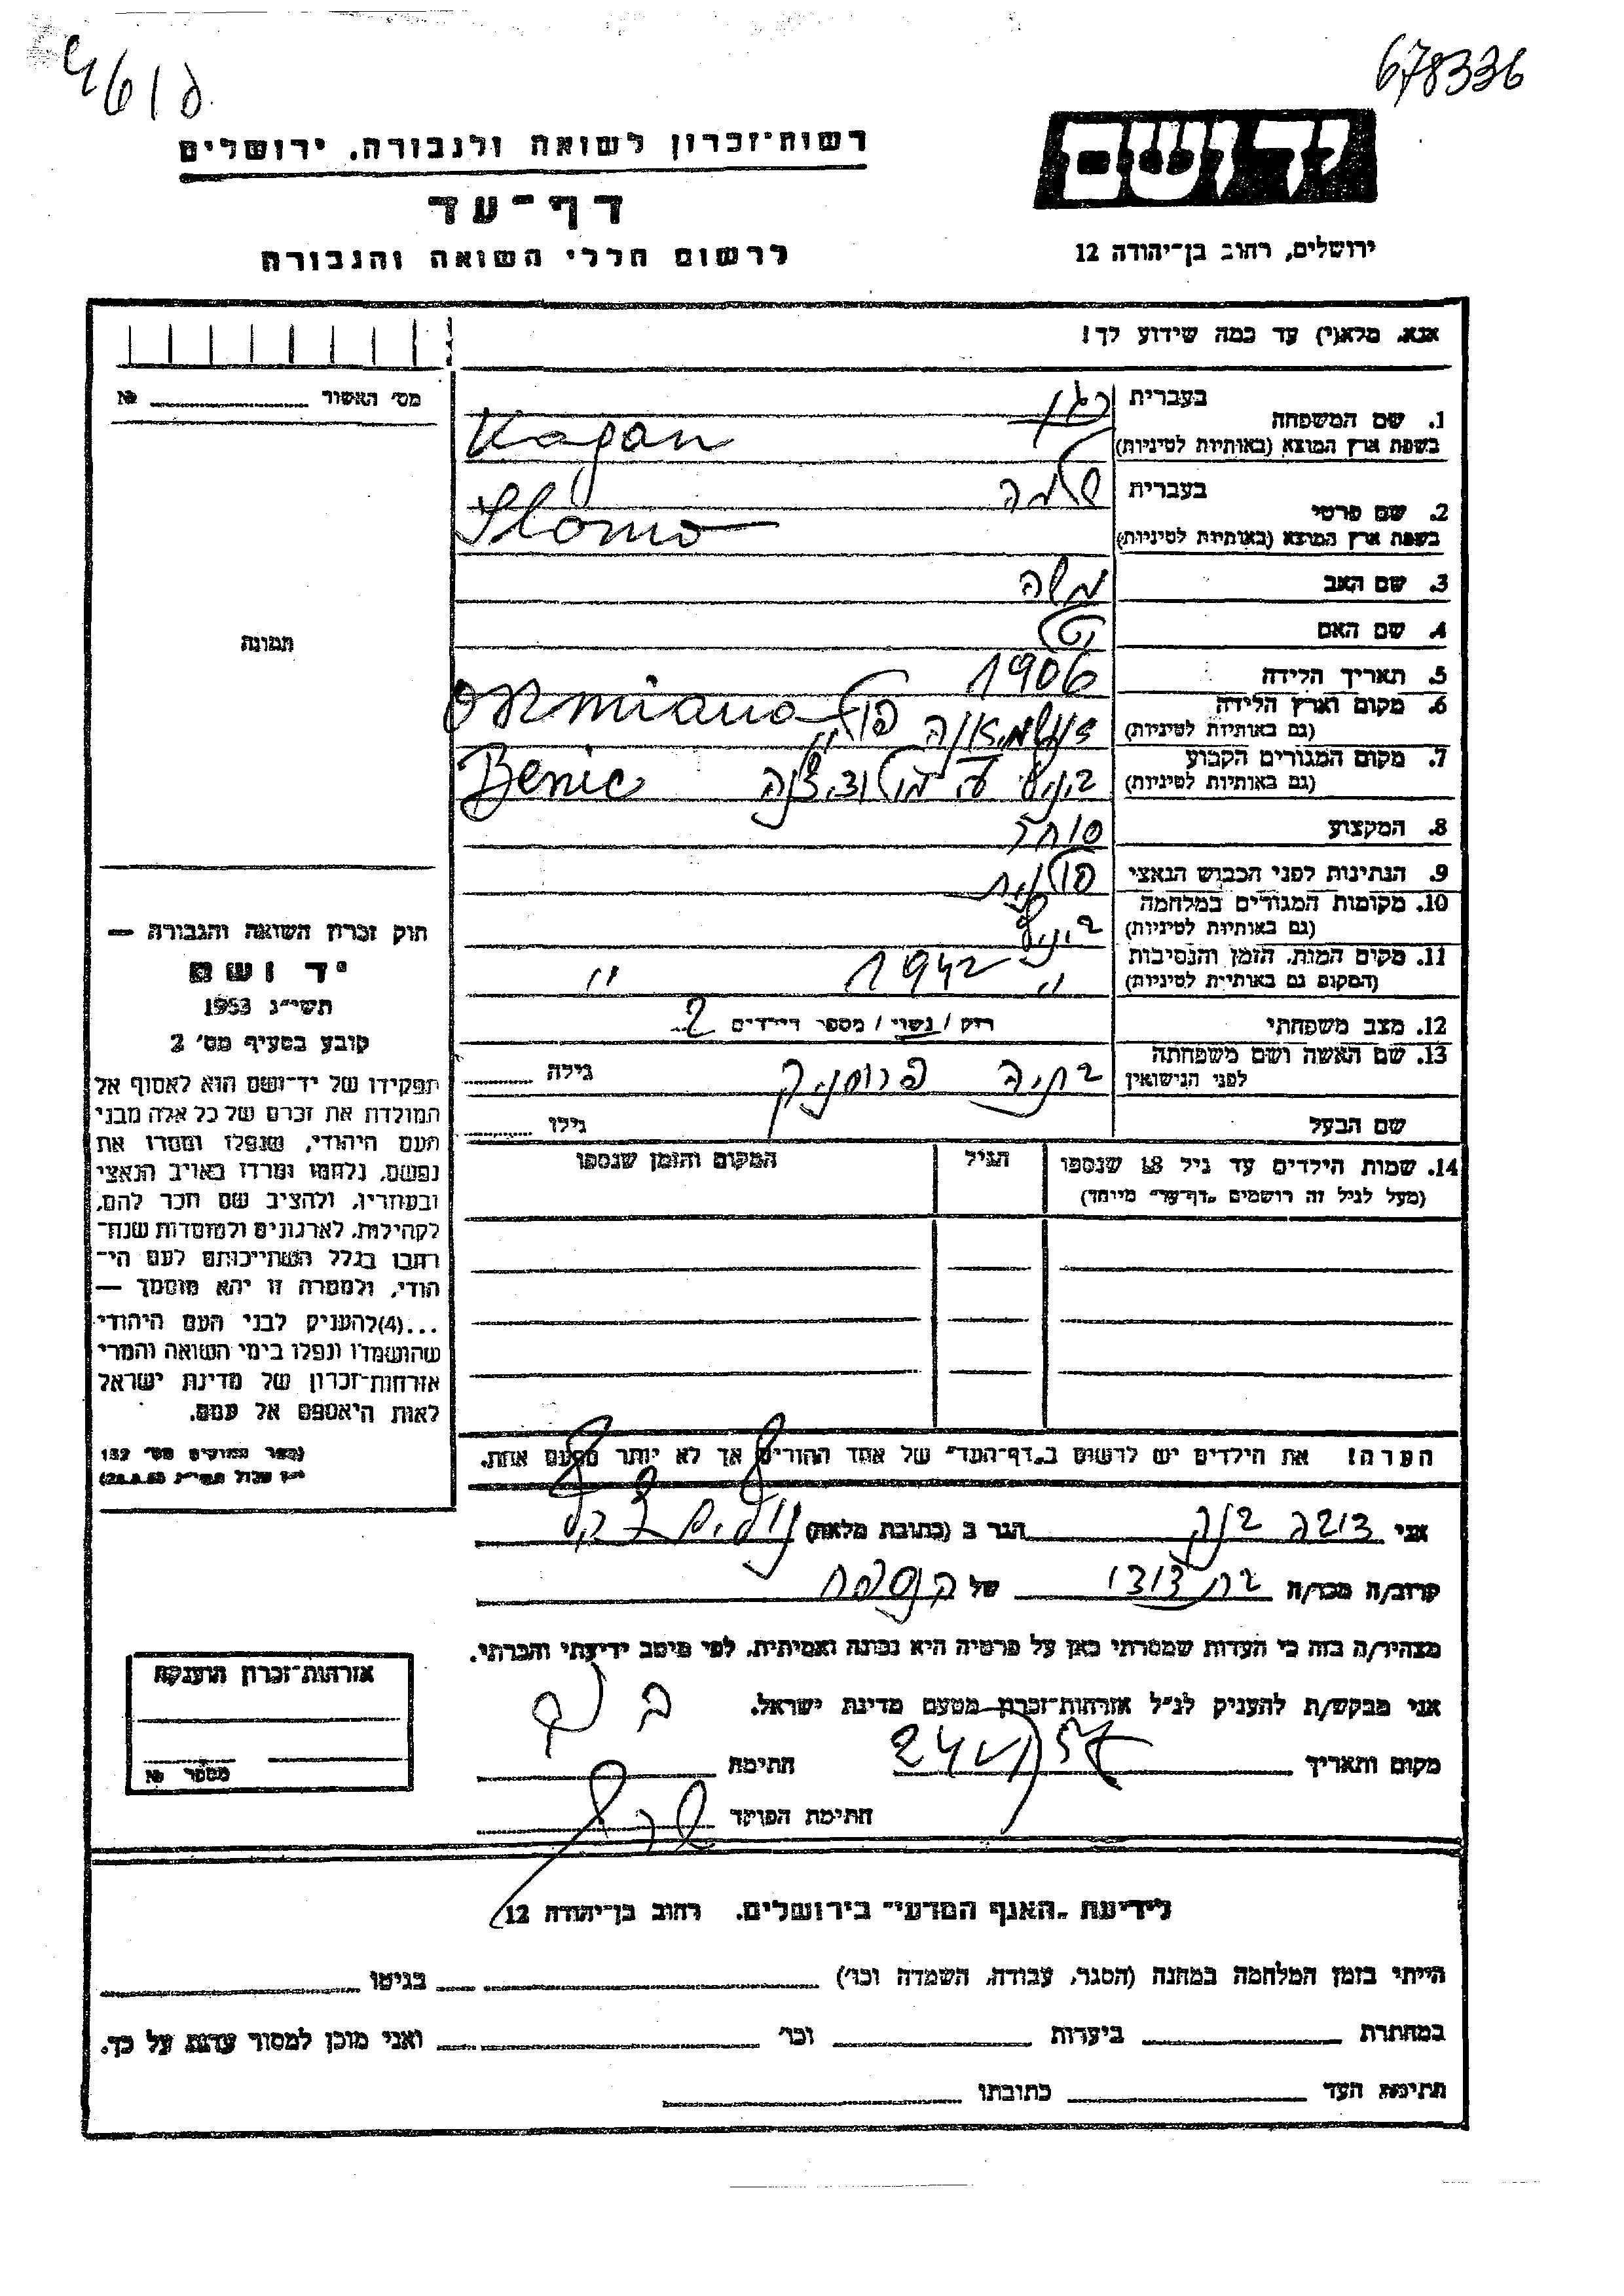 678336
רשות־זכרון לשואה ולגבורה. ירושלים
יד ושם
דף־עד
לרשום חללי השואה והגבורה
ירושלים, רחוב בן־יהודה 12
אנא. מלא(י) עד כמה שידוע לך!
מס׳ האשור № 
1. שם המשפחה
בעברית כגן
בשפת ארץ המוצא (באותיות לטיניות) Kagan
2. שם פרטי
בעברית שלמה
בשפת ארץ המוצא (באותיות לטיניות) Slomo
3. שם האב משה
4. שם האם
5. תאריך הלידה 1906
6. מקום וארץ הלידה
(גם באותיות לטיניות) פולין
7. מקום המגורים הקבוע
(גם באותיות לטיניות) Benic
8. המקצוע סוחר
9. הנתינות לפני הכבוש הנאצי פולנית
10. מקומות המגורים במלחמה
(גם באותיות לטיניות)
11. מקום המות. הזמן והנסיבות
(המקום גם באותיות לטיניות) " 1942 "
12. מצב משפחתי רווק / נשוי / מספר הילדים 2
13. שם האשה ושם משפחתה
לפני הנישואין בתיה גילה
שם הבעל גילו
14. שמות הילדים עד גיל 18 שנספו
(מעל לגיל זה רושמים „דף־עד״ מיוחד)
הגיל
המקום והזמן שנספו
תמונה
חוק זכרון השואה והגבורה —
יד ושם
תשי״ג 1953
קובע בסעיף מס׳ 2
תפקידו של יד־ושם הוא לאסוף אל
המולדת את זכרם של כל אלה מבני
העם היהודי, שנפלו ומסרו את
נפשם. נלחמו ומרדו באויב הנאצי
ובעוזריו, ולהציב שם וזכר להם,
לקהילות, לארגונים ולמוסדות שנח־
רבו בגלל השתייכותם לעם הי־
הודי, ולמטרה זו יהא מוסמך —
...(4)להעניק לבני העם היהודי
שהושמדו ונפלו בימי השואה והמרי
אזרחות־זכרון של מדינת ישראל
לאות היאספם אל עמם.
(ספר החוקים מס׳ 132
הערה! את הילדים יש לרשום ב„דף־העד״ של אחד ההורים אך לא יותר מפעם אחת.
אני הגר ב (כתובת מלאה)
קרוב/ה מכר/ה בת דודו של הנספה
מצהיר/ה בזה כי העדות שמסרתי כאן על פרטיה היא נכונה ואמיתית. לפי מיטב ידיעתי והכרתי.
אני מבקש/ת להעניק לנ״ל אזרחות־זכרון מטעם מדינת ישראל.
מקום ותאריך חתימה
חתימת הפוקד
אזרחות־זכרון הוענקה
מספר №
לידיעת „האגף המדעי״ בירושלים. רחוב בן־יהודה 12
הייתי בזמן המלחמה במחנה (הסגר, עבודה, השמדה וכו׳) בגיטו
במחתרת ביערות וכו׳ ואני מוכן למסור עדות על כך.
חתימת העד כתובתו